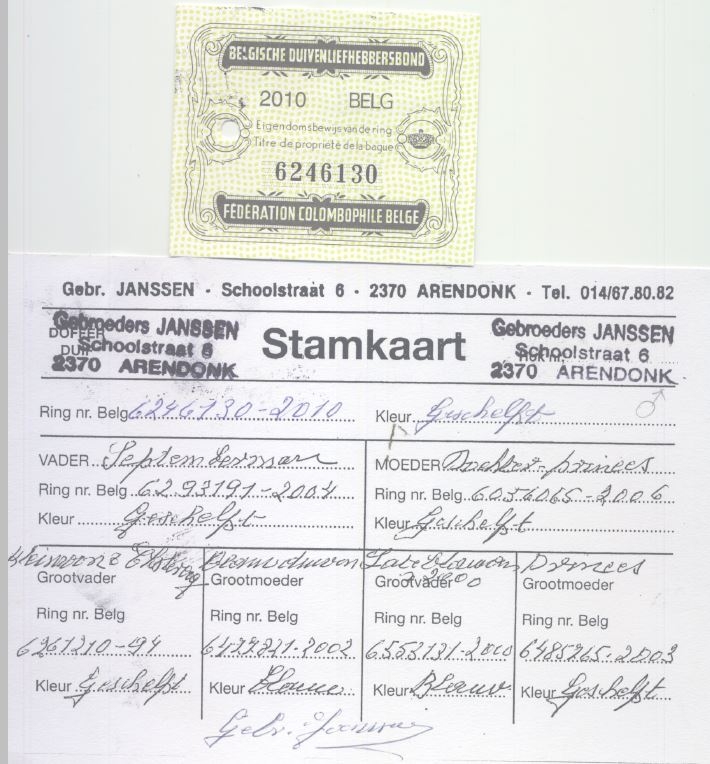 BELGISCHE DUIVENLIEFHEBBERSBOND
2010 BELG
Eigendomsbewijs van de ring
Titre de propriété de la bague
6246130
FÉDÉRATION COLOMBOPHILE BELGE
Gebr. JANSSEN - Schoolstraat 6 - 2370 ARENDONK - Tel. 014/67.80.82
DOFFER
DUIF
Gebroeders JANSSEN
Schoolstraat 6
2370 ARENDONK
Stamkaart
Gebroeders JANSSEN
Schoolstraat 6
2370 ARENDONK
♂
Ring nr. Belg 6246130-2010 Kleur Geschelft
VADER Septemberman MOEDER Dochter-prinses
Ring nr. Belg 6293191-2004 Ring nr. Belg 6036065-2006
Kleur Geschelft Kleur Geschelft
Prinses
Grootvader Grootmoeder Grootvader Grootmoeder
Ring nr. Belg Ring nr. Belg Ring nr. Belg Ring nr. Belg
6261310-94 2002 6553131-2000 6485265-2003
Kleur Geschelft Kleur Blauw Kleur Blauw Kleur Geschelft
Gebr. Janssen